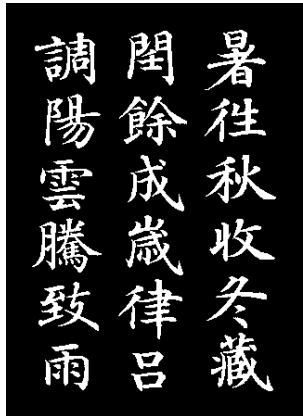 暑徃秋收冬藏
閏餘成歲律呂
調陽雲騰致雨